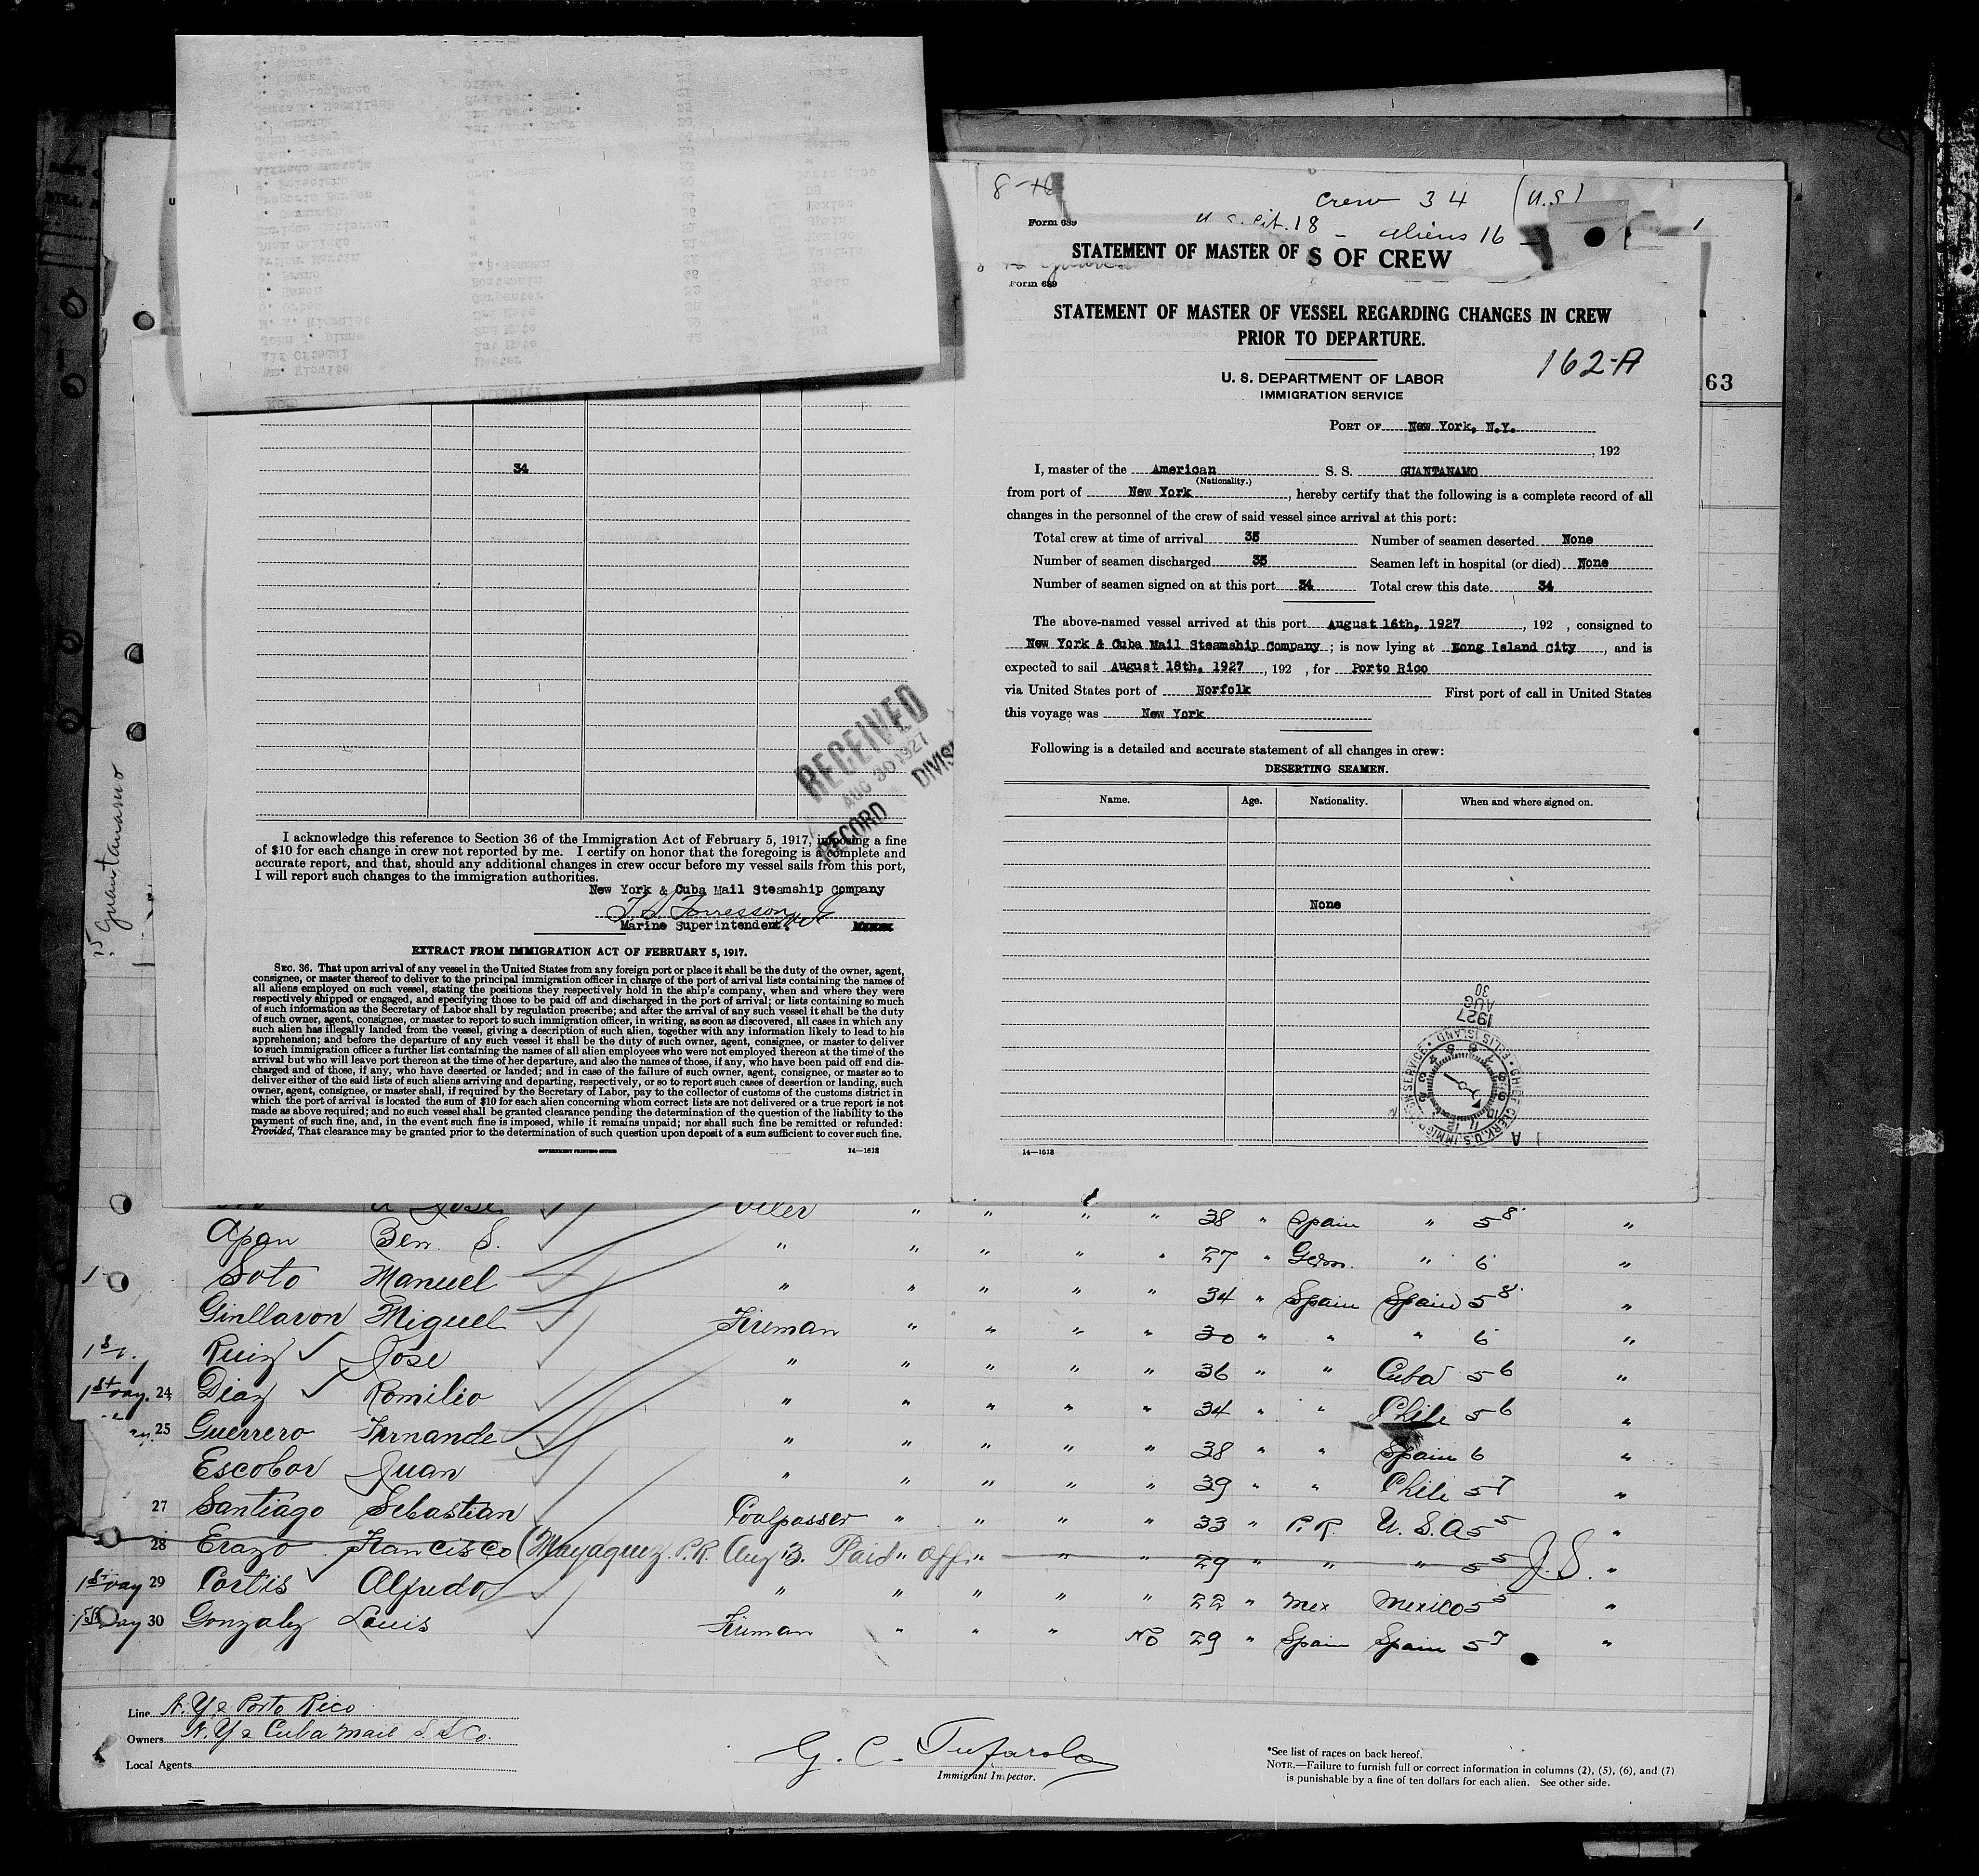 8-16
Crew 34 (U.S)
Form 689
U.S. Cit. 18 - Aliens 16 -
STATEMENT OF MASTER OF
S OF CREW
Form 689
STATEMENT OF MASTER OF VESSEL REGARDING CHANGES IN CREW
PRIOR TO DEPARTURE.
162-A
U. S. DEPARTMENT OF LABOR
IMMIGRATION SERVICE
63
PORT OF New York, N.Y.
, 192
I, master of the American S. S. GUANTANAMO
(Nationality.)
from port of New York, hereby certify that the following is a complete record of all
changes in the personnel of the crew of said vessel since arrival at this port:
Total crew at time of arrival 35 Number of seamen deserted None
Number of seamen discharged 35 Seamen left in hospital (or died) None
Number of seamen signed on at this port 34 Total crew this date 34
The above-named vessel arrived at this port August 16th, 1927, 192 , consigned to
New York & Cuba Mail Steamship Company; is now lying at Long Island City, and is
expected to sail August 18th, 1927, 192 , for Porto Rico
via United States port of Norfolk First port of call in United States
this voyage was New York
Following is a detailed and accurate statement of all changes in crew:
DESERTING SEAMEN.
Name. Age. Nationality. When and where signed on.
None
AUG 30 1927
CHIEF CLERK, U.S. IMMIGRATION SERVICE • ELLIS ISLAND •
14—1613
34
RECEIVED
AUG 30 1927
RECORD DIVIS
I acknowledge this reference to Section 36 of the Immigration Act of February 5, 1917, imposing a fine
of $10 for each change in crew not reported by me. I certify on honor that the foregoing is a complete and
accurate report, and that, should any additional changes in crew occur before my vessel sails from this port,
I will report such changes to the immigration authorities.
New York & Cuba Mail Steamship Company
Marine Superintendent.
EXTRACT FROM IMMIGRATION ACT OF FEBRUARY 5, 1917.
SEC. 36. That upon arrival of any vessel in the United States from any foreign port or place it shall be the duty of the owner, agent,
consignee, or master thereof to deliver to the principal immigration officer in charge of the port of arrival lists containing the names of
all aliens employed on such vessel, stating the positions they respectively hold in the ship's company, when and where they were
respectively shipped or engaged, and specifying those to be paid off and discharged in the port of arrival; or lists containing so much
of such information as the Secretary of Labor shall by regulation prescribe; and after the arrival of any such vessel it shall be the duty
of such owner, agent, consignee, or master to report to such immigration officer, in writing, as soon as discovered, all cases in which any
such alien has illegally landed from the vessel, giving a description of such alien, together with any information likely to lead to his
apprehension; and before the departure of any such vessel it shall be the duty of such owner, agent, consignee, or master to deliver
to such immigration officer a further list containing the names of all alien employees who were not employed thereon at the time of the
arrival but who will leave port thereon at the time of her departure, and also the names of those, if any, who have been paid off and dis-
charged and of those, if any, who have deserted or landed; and in case of the failure of such owner, agent, consignee, or master so to
deliver either of the said lists of such aliens arriving and departing, respectively, or so to report such cases of desertion or landing, such
owner, agent, consignee, or master shall, if required by the Secretary of Labor, pay to the collector of customs of the customs district in
which the port of arrival is located the sum of $10 for each alien concerning whom correct lists are not delivered or a true report is not
made as above required; and no such vessel shall be granted clearance pending the determination of the question of the liability to the
payment of such fine, and, in the event such fine is imposed, while it remains unpaid; nor shall such fine be remitted or refunded:
Provided, That clearance may be granted prior to the determination of such question upon deposit of a sum sufficient to cover such fine.
GOVERNMENT PRINTING OFFICE 14—1613
Guantanamo
Jose Oiler " " " " 38 " Spain " 5 8 "
Apan Ben. S. " " " " " 27 " Germ. " 6 "
Soto Manuel " " " " " 34 " Spain Spain 5 8 "
Ginllavon Miguel Fireman " " " " 30 " " " 6 "
Ruiz Jose " " " " " 36 " " Cuba 5 6 "
1st Voy. 24 Diaz Romilio " " " " " 34 " " Chile 5 6 "
25 Guerrero Fernande " " " " " 38 " " Spain 6 "
Escobar Juan " " " " " 39 " " Chile 5 7 "
27 Santiago Sebastian Coalpasser " " " " 33 " P.R. U.S.A 5 5 "
28 Erazo Francisco (Mayaguez. P.R. Aug 3. Paid off " " 29 " " " 5 5 J.S. "
1st Voy 29 Cortis Alfredo " " " " " 22 " Mex Mexico 5 5 "
1st Voy 30 Gonzalez Louis Fireman " " " No 29 " Spain Spain 5 7 "
Line N.Y & Porto Rico
Owners N.Y & Cuba Mail S.S Co.
Local Agents
G. C. Tufarolo
Immigrant Inspector.
*See list of races on back hereof.
NOTE.—Failure to furnish full or correct information in columns (2), (5), (6), and (7)
is punishable by a fine of ten dollars for each alien. See other side.